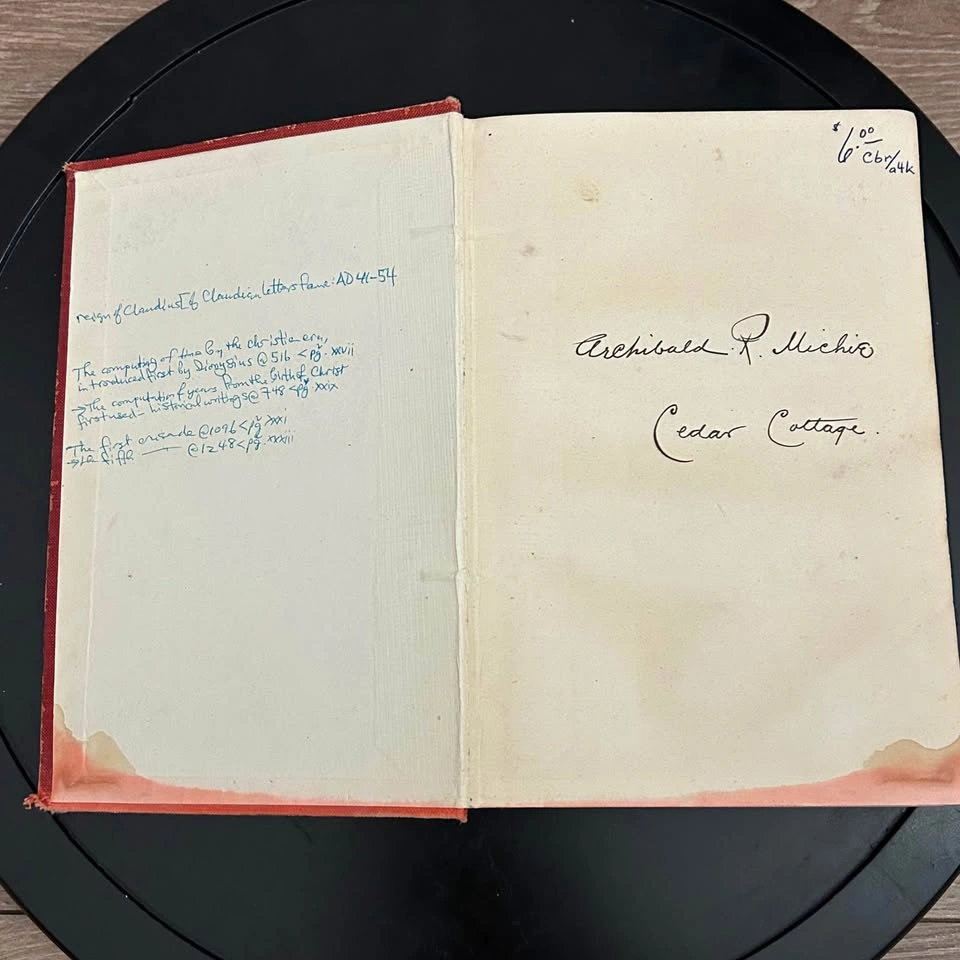 reign of Claudius [of Claudian letters fame: AD 41-54
The computing of time by the christie era,
introduced first by Dionysius @ 516 < pg. xxvii
→ The computation of years from the birth of Christ
first used - historical writings @ 748 < pg xxix
The first crusade @ 1096 < pg xxxi
→ the fifth — @ 1248 < pg xxxiii
$6.00
cbr/a4k
Archibald R. Michie
Cedar Cottage.